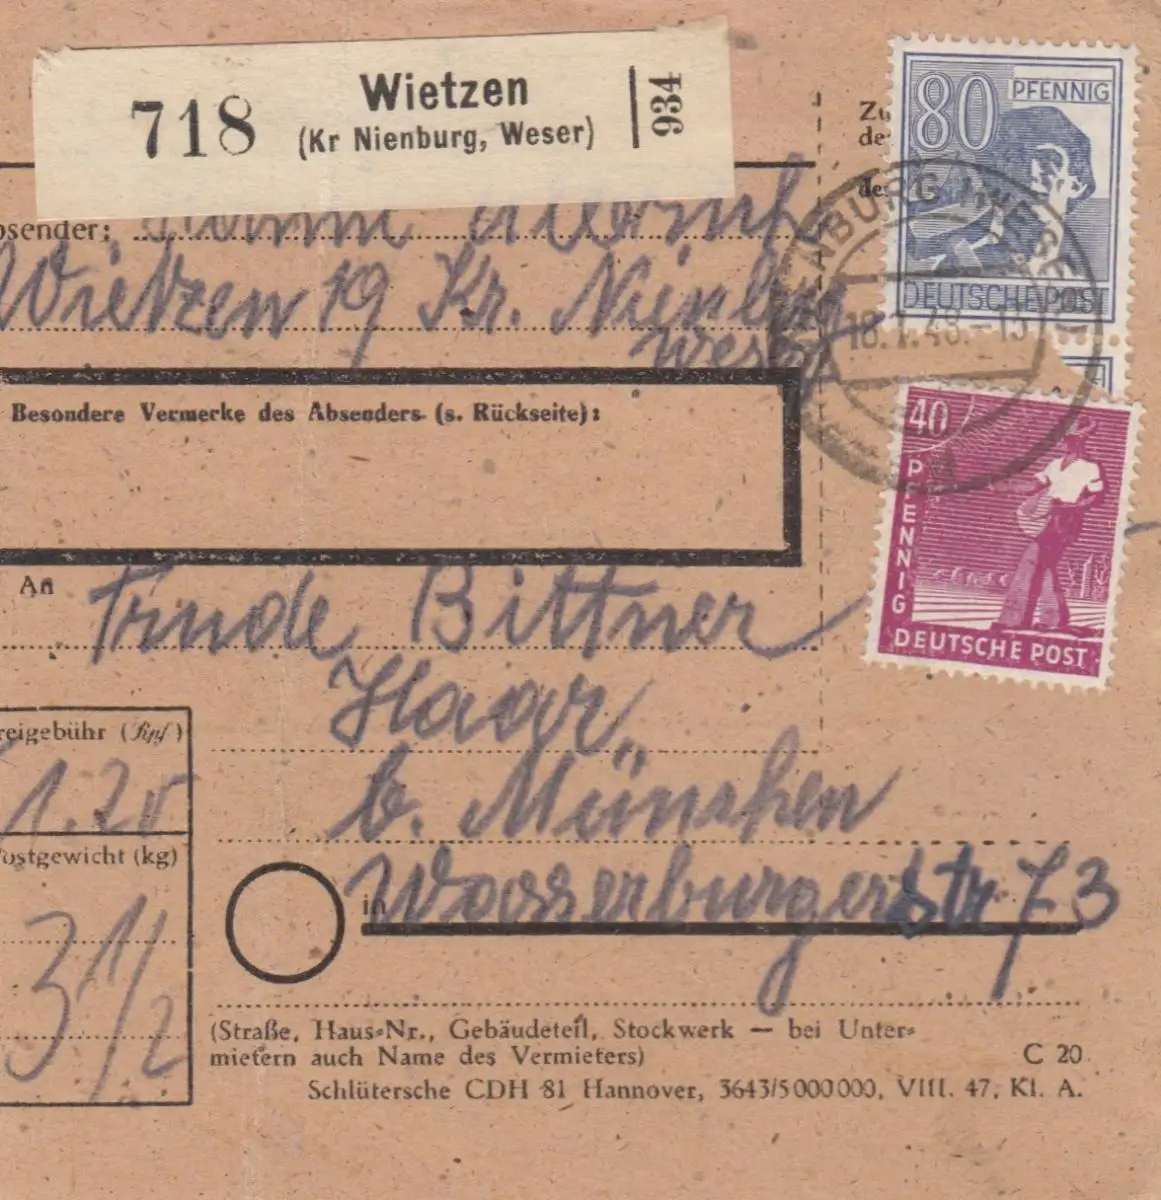 718
Wietzen
(Kr Nienburg, Weser)
934
80 PFENNIG
DEUTSCHE POST
Zu
de
de
bsender:
Wietzen 19 Kr. Nienburg
Weser
NIENBURG (WESER)
18.1.48.-13
Besondere Vermerke des Absenders (s. Rückseite):
40 PFENNIG
DEUTSCHE POST
An Trude Bittner
Haar
b. München
in Wasserburgerstr 73
reigebühr (Rpf)
1.20
Postgewicht (kg)
3 1/2
(Straße, Haus-Nr., Gebäudeteil, Stockwerk — bei Unter-
mietern auch Name des Vermieters)
C 20
Schlütersche CDH 81 Hannover, 3643/5 000 000, VIII. 47, Kl. A.